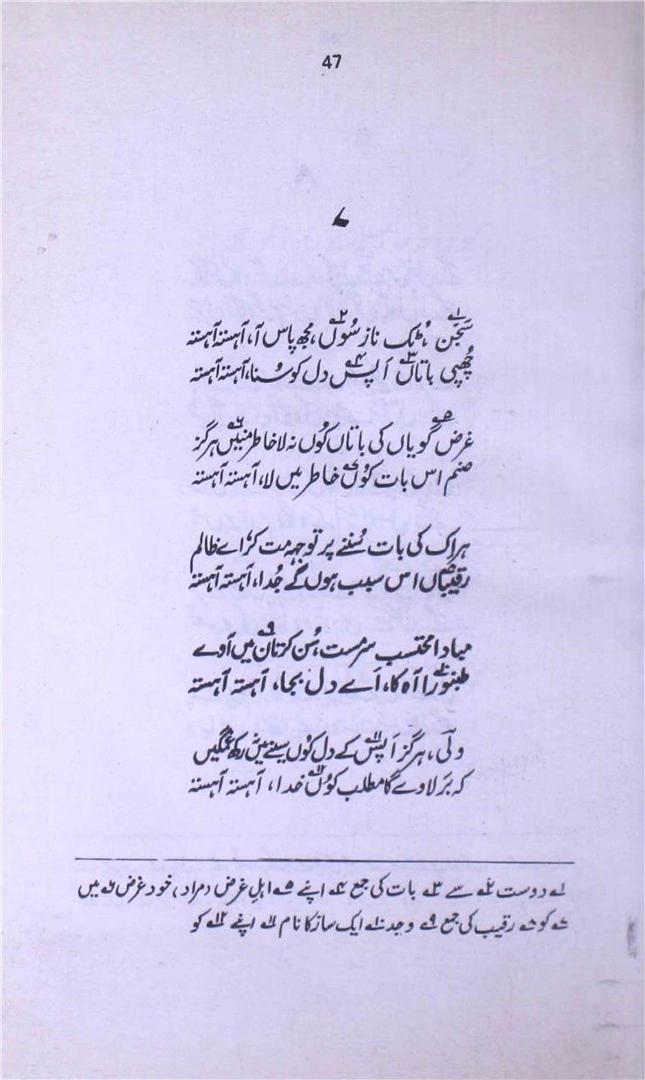 47
۷
سجن ۱؎ ، ٹک ناز سُوں ۲؎ ، مجھ پاس آ، آہستہ آہستہ
چُھپی باتاں ۳؎ اَپس ۴؎ دل کو سُنا، آہستہ آہستہ
غرض گویاں ۵؎ کی باتاں کُوں نہ لا خاطر منیں ۶؎ ہرگز
صنم اس بات کُوں ۷؎ خاطر میں لا، آہستہ آہستہ
ہر اِک کی بات سُننے پر توجہ مت کر، اے ظالم
رقیباں ۸؎ اس سبب ہوں گے جُدا، آہستہ آہستہ
مبادا محتسب سرمست، سُن کر تان ۹؎ میں آوے
طنبورا ۱۰؎ آہ کا، اَے دل بجا، آہستہ آہستہ
ولی، ہرگز اَپس ۱۱؎ کے دل کُوں سینے میں نہ رکھ غمگیں
کہ بَر لاوے گا مطلب کُوں ۱۲؎ خدا، آہستہ آہستہ
۱؎ دوست ۲؎ سے ۳؎ بات کی جمع ۴؎ اپنے ۵؎ اہلِ غرض (مراد، خود غرض) ۶؎ میں
۷؎ کو ۸؎ رقیب کی جمع ۹؎ وجد ۱۰؎ ایک ساز کا نام ۱۱؎ اپنے ۱۲؎ کو